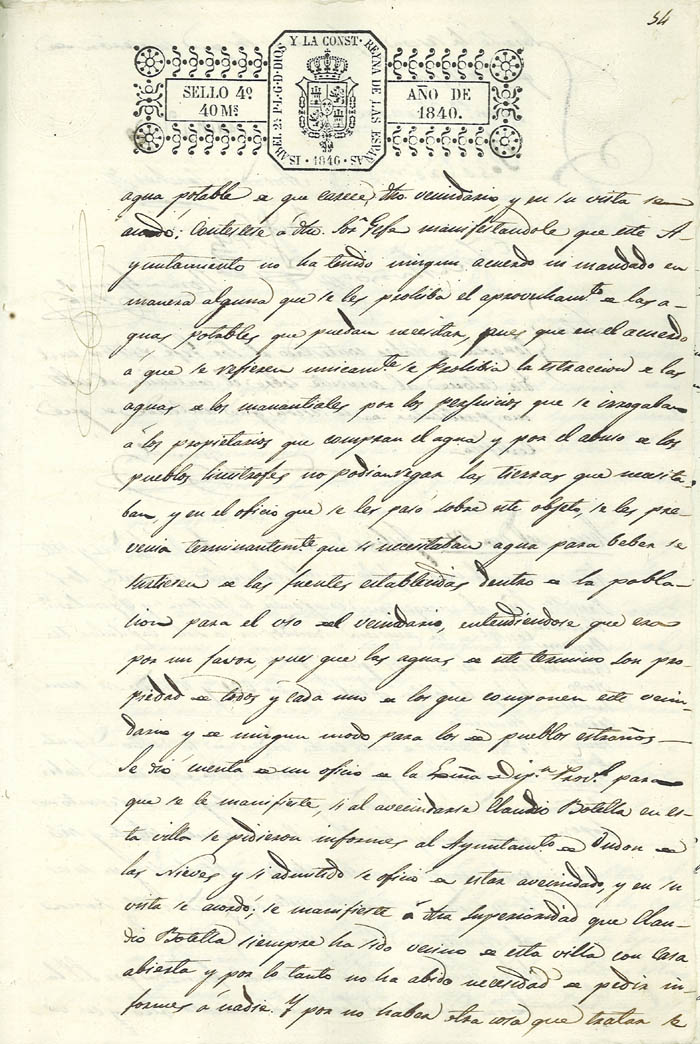 54
ISABEL 2ª P.L.G.D.DIOS Y LA CONST. REYNA DE LAS ESPAÑAS
SELLO 4º
40 Mˢ
AÑO DE
1840.
1840
agua potable de que carece dho. vecindario, y en su vista se
acordó: Contestese á dho. Sor. Gefe manifestandole que este A-
yuntamiento no ha tenido ningun acuerdo ni mandado en
manera alguna que se les prohiba el aprovechamto. de las a-
guas potables que puedan necesitar, pues que en el acuerdo
á que se refieren unicamte. se prohibia la estraccion de las
aguas de los manantiales por los perjuicios que se irrogaban
á los propietarios que compran el agua y por el abuso de los
pueblos limitrofes no podian regar las tierras que necesita-
ban, y en el oficio que se les pasó sobre este objeto, se les pre-
venia terminantemte. que si necesitaban agua para beber se
surtiesen de las fuentes establecidas dentro de la pobla-
cion para el uso del vecindario, entendiendose que era
por un favor, pues que las aguas de este termino son pro-
piedad de todos y cada uno de los que componen este vecin-
dario y de ningun modo para los de pueblos estraños.
Se dió cuenta de un oficio de la Exma. Dipn. Provl. para
que se le manifieste, si al avecindarse Claudio Botella en es-
ta villa se pidieron informes al Ayuntamto. de Ondon de
las Nieves y si admitido se ofició de estar avecindado, y en su
vista se acordó; se manifieste á dha. Superioridad que Clau-
dio Botella siempre ha sido vecino de esta villa con casa
abierta y por lo tanto no ha abido necesidad de pedir in-
formes á nadie. Y por no haber otra cosa que tratar se